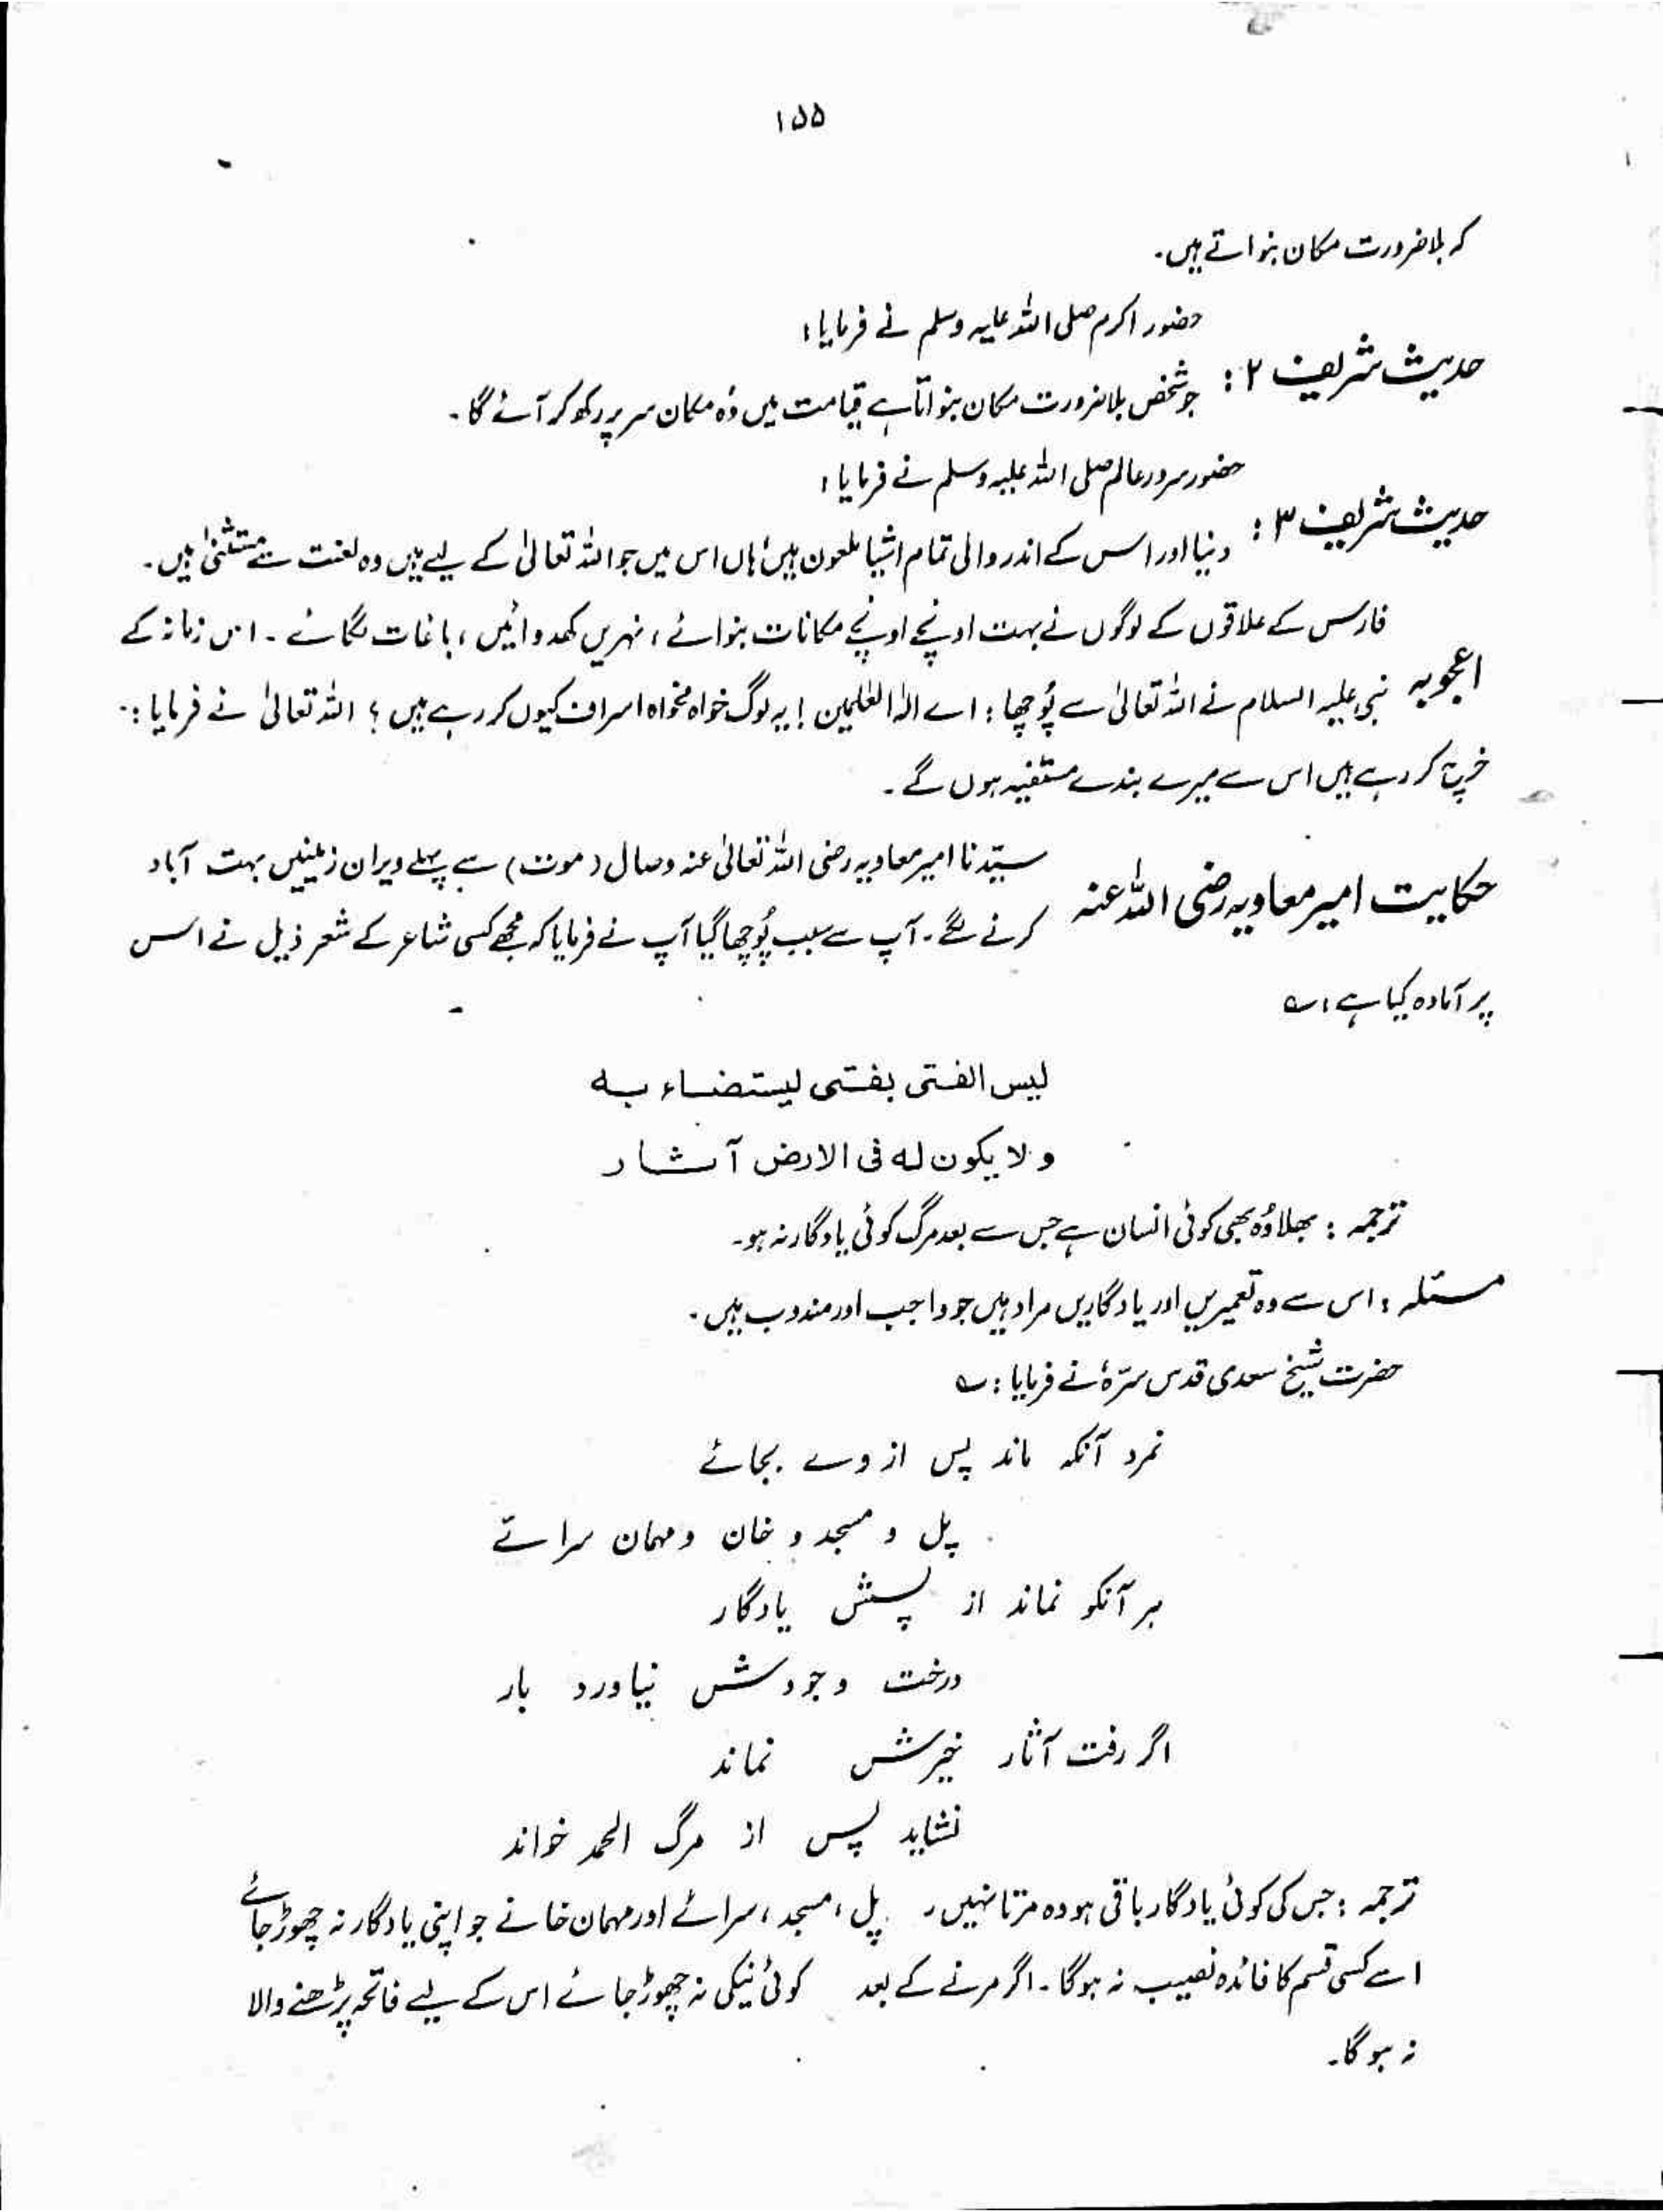 ۱۵۵
کہ بلا ضرورت مکان بنواتے ہیں۔
حضور اکرم صلی اللہ علیہ وسلم نے فرمایا:
حدیث شریف ۲:
جو شخص بلا ضرورت مکان بنواتا ہے قیامت میں وُہ مکان سر پر رکھ کر آئے گا۔
حضور سرور عالم صلی اللہ علیہ وسلم نے فرمایا:
حدیث شریف ۳:
دنیا اور اس کے اندر والی تمام اشیا ملعون ہیں ہاں اس میں جو اللہ تعالیٰ کے لیے ہیں وہ لعنت سے مستثنیٰ ہیں۔
فارس کے علاقوں کے لوگوں نے بہت اونچے اونچے مکانات بنوائے، نہریں کھدوائیں، باغات لگائے۔ اس زمانہ کے
اعجوبہ
نبی علیہ السلام نے اللہ تعالیٰ سے پُوچھا: اے الٰہ العٰلمین! یہ لوگ خواہ مخواہ اسراف کیوں کر رہے ہیں؟ اللہ تعالیٰ نے فرمایا:
خرچ کر رہے ہیں اس سے میرے بندے مستفید ہوں گے۔
سیّدنا امیر معاویہ رضی اللہ تعالیٰ عنہ وصال (موت) سے پہلے ویران زمینیں بہت آباد
حکایت امیر معاویہ رضی اللہ عنہ
کرنے لگے۔ آپ سے سبب پُوچھا گیا آپ نے فرمایا کہ مجھے کسی شاعر کے شعر ذیل نے اس
پر آمادہ کیا ہے، ؎
لیس الفتی بفتی لیستضاء بہ
و لا یکون لہ فی الارض آثار
ترجمہ: بھلا وُہ بھی کوئی انسان ہے جس سے بعد مرگ کوئی یادگار نہ ہو۔
مسئلہ: اس سے وہ تعمیریں اور یادگاریں مراد ہیں جو واجب اور مندوب ہیں۔
حضرت شیخ سعدی قدس سرّہٗ نے فرمایا: ؎
نمرد آنکہ ماند پس از وے بجائے
پل و مسجد و خان و مہمان سرائے
ہر آنکو نماند از پسش یادگار
درخت وجودش نیاورد بار
اگر رفت آثار خیرش نماند
نشاید پس از مرگ الحمد خواند
ترجمہ: جس کی کوئی یادگار باقی ہو وہ مرتا نہیں، پل، مسجد، سرائے اور مہمان خانے جو اپنی یادگار نہ چھوڑ جائے
اسے کسی قسم کا فائدہ نصیب نہ ہوگا۔ اگر مرنے کے بعد کوئی نیکی نہ چھوڑ جائے اس کے لیے فاتحہ پڑھنے والا
نہ ہو گا۔